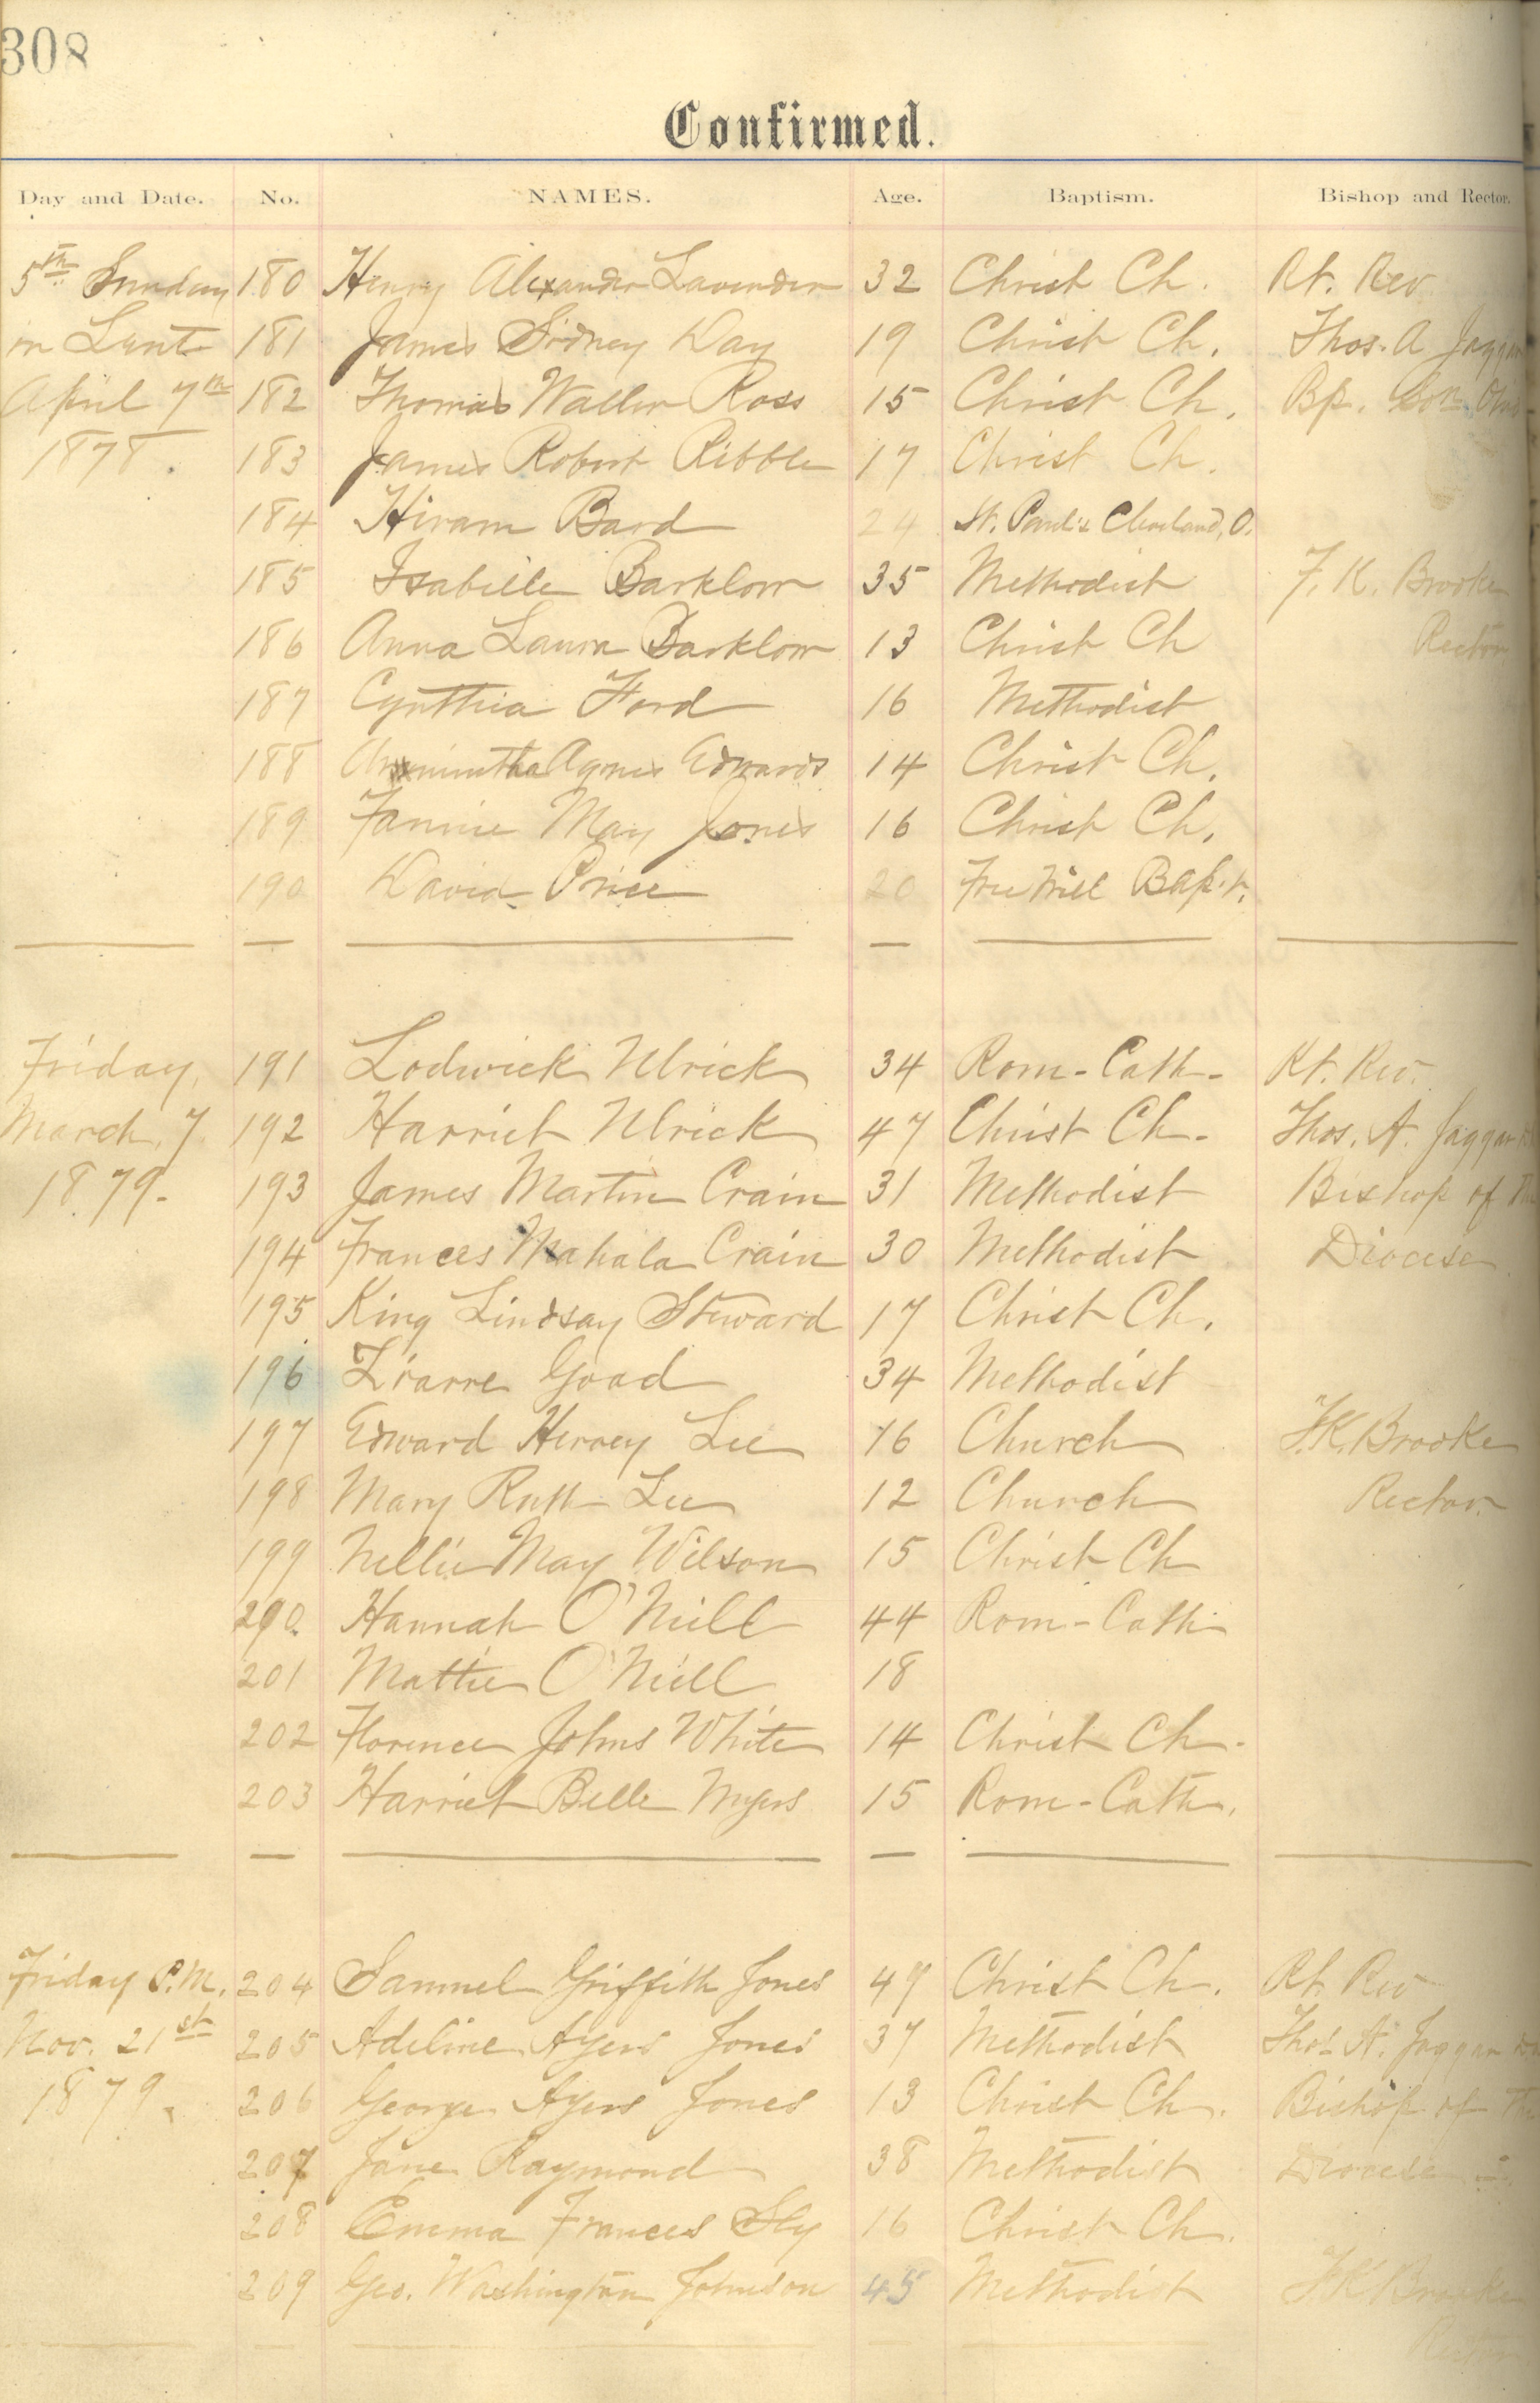 308
Confirmed.
Day and Date. No. NAMES. Age. Baptism. Bishop and Rector.
5th Sunday 180 Henry Alexander Lavender 32 Christ Ch. Rt. Rev
in Lent 181 James Sidney Day 19 Christ Ch. Thos. A Jaggar
April 7th 182 Thomas Waller Ross 15 Christ Ch. Bp. Son Ohio
1878. 183 James Robert Ribble 17 Christ Ch.
184 Hiram Bard 24 St. Paul's Cleveland, O.
185 Isabelle Barklow 35 Methodist F. K. Brooke
186 Anna Laura Barklow 13 Christ Ch Rector
187 Cynthia Ford 16 Methodist
188 Agnes Edwards 14 Christ Ch.
189 Fannie May Jones 16 Christ Ch.
190 David Price 20 Free Will Bapt.
Friday, 191 Lodwick Ulrick 34 Rom-Cath- Rt. Rev.
March, 7. 192 Harriet Ulrick 47 Christ Ch- Thos. A. Jaggar
1879- 193 James Martin Crain 31 Methodist Bishop of The
194 Frances Mahala Crain 30 Methodist Diocese
195 King Lindsay Steward 17 Christ Ch.
196 Goad 34 Methodist
197 Edward Hervey Lee 16 Church F.K. Brooke
198 Mary Ruth Lee 12 Church Rector.
199 Nellie May Wilson 15 Christ Ch
290. Hannah O'Neill 44 Rom-Cath-
201 Mattie O'Neill 18
202 Florence Johns White 14 Christ Ch-
203 Harriet Belle Myers 15 Rom-Cath.
Friday P.M. 204 Samuel Griffith Jones 49 Christ Ch. Rt. Rev
Nov. 21st 205 Adeline Ayers Jones 37 Methodist Thos A. Jaggar
1879. 206 George Ayers Jones 13 Christ Ch. Bishop of The
207 Jane Raymond 38 Methodist Diocese
208 Emma Frances Sly 16 Christ Ch.
209 Geo. Washington Johnson 45 Methodist F.K. Brooke
Rector